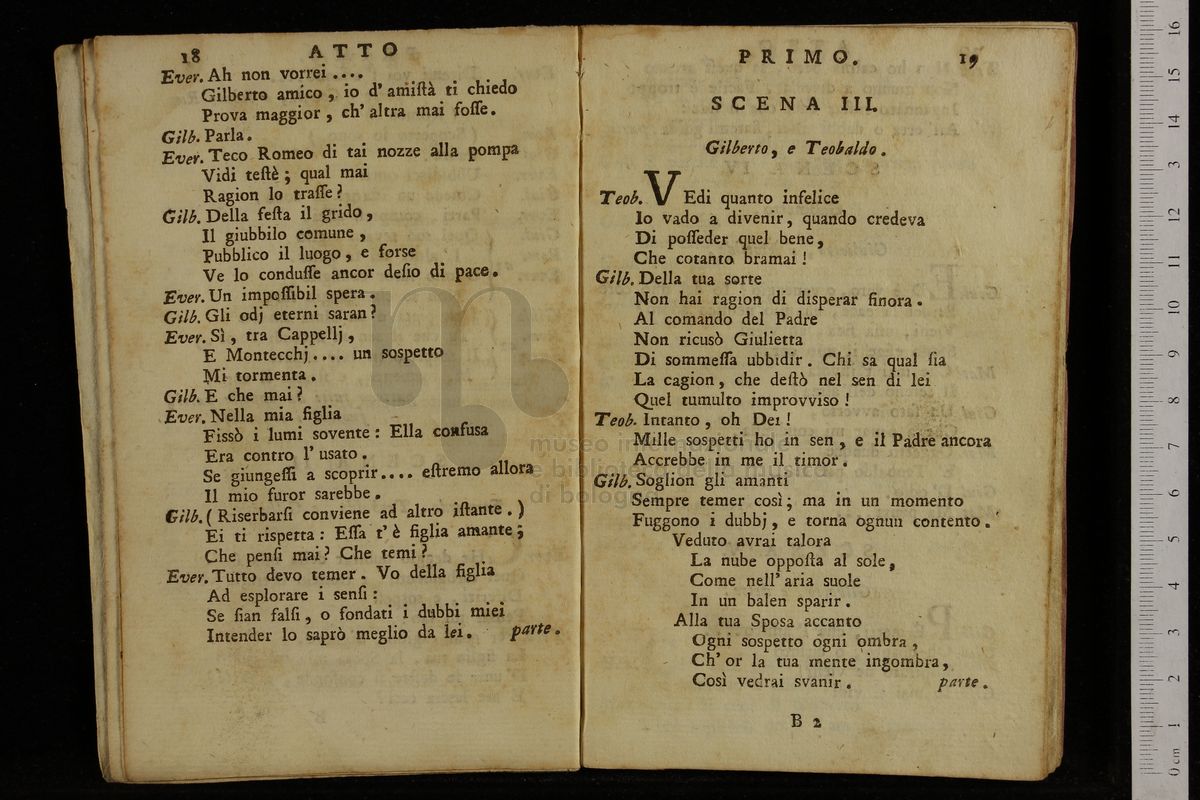 18 ATTO
Ever. Ah non vorrei ....
Gilberto amico, io d' amiſtà ti chiedo
Prova maggior, ch' altra mai foſſe.
Gilb. Parla.
Ever. Teco Romeo di tai nozze alla pompa
Vidi teſtè; qual mai
Ragion lo traſſe?
Gilb. Della feſta il grido,
Il giubbilo comune,
Pubblico il luogo, e forse
Ve lo conduſſe ancor deſio di pace.
Ever. Un impoſſibil spera.
Gilb. Gli odj eterni saran?
Ever. Sì, tra Cappellj,
E Montecchj.... un sospetto
Mi tormenta.
Gilb. E che mai?
Ever. Nella mia figlia
Fissò i lumi sovente: Ella confusa
Era contro l' usato.
Se giungeſſi a scoprir.... eſtremo allora
Il mio furor sarebbe.
Gilb. (Riserbarſi conviene ad altro iſtante.)
Ei ti rispetta: Eſſa t' è figlia amante;
Che penſi mai? Che temi?
Ever. Tutto devo temer. Vo della figlia
Ad esplorare i senſi:
Se ſian falſi, o fondati i dubbi miei
Intender lo saprò meglio da lei. parte.
PRIMO. 19
SCENA III.
Gilberto, e Teobaldo.
Teob. VEdi quanto infelice
Io vado a divenir, quando credeva
Di poſſeder quel bene,
Che cotanto bramai!
Gilb. Della tua sorte
Non hai ragion di disperar finora.
Al comando del Padre
Non ricusò Giulietta
Di sommeſſa ubbidir. Chi sa qual ſia
La cagion, che deſtò nel sen di lei
Quel tumulto improvviso!
Teob. Intanto, oh Dei!
Mille sospetti ho in sen, e il Padre ancora
Accrebbe in me il timor.
Gilb. Soglion gli amanti
Sempre temer così; ma in un momento
Fuggono i dubbj, e torna ognun contento.
Veduto avrai talora
La nube oppoſta al sole,
Come nell' aria suole
In un balen sparir.
Alla tua Sposa accanto
Ogni sospetto ogni ombra,
Ch' or la tua mente ingombra,
Così vedrai svanir. parte.
B 2
museo internazionale
e biblioteca della musica
di bologna
0 cm 1 2 3 4 5 6 7 8 9 10 11 12 13 14 15 16